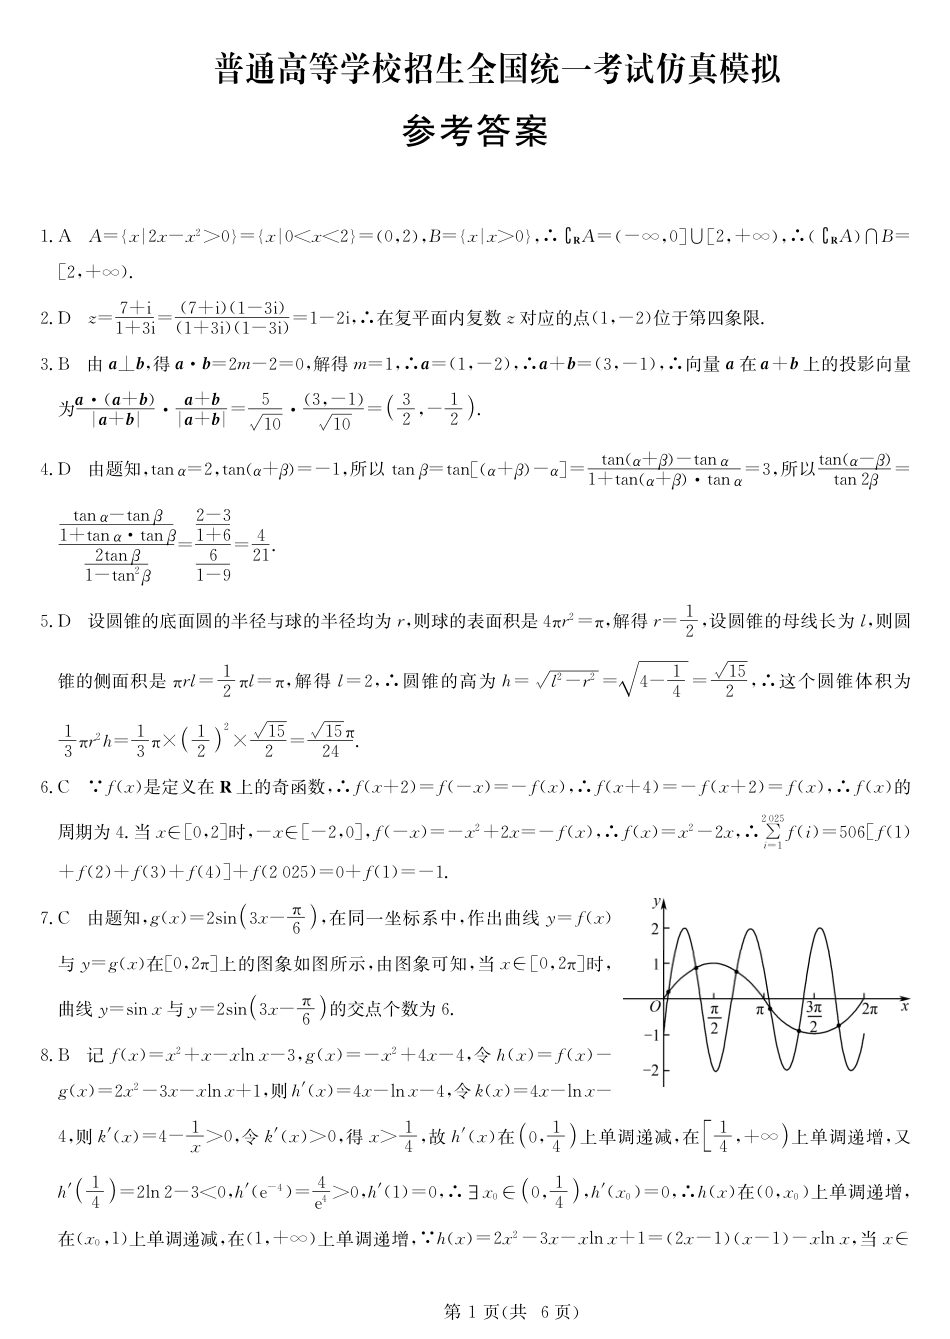 普通高等学校招生全国统一考试仿真模拟
参考答案
1. A　A={x|2x-x²>0}={x|0<x<2}=(0,2),B={x|x>0},∴∁RA=(-∞,0]∪[2,+∞),∴(∁RA)∩B=
[2,+∞).
2. D　z=\frac{7+i}{1+3i}=\frac{(7+i)(1-3i)}{(1+3i)(1-3i)}=1-2i,∴在复平面内复数 z 对应的点(1,-2)位于第四象限.
3. B　由 a⊥b,得 a·b=2m-2=0,解得 m=1,∴a=(1,-2),∴a+b=(3,-1),∴向量 a 在 a+b 上的投影向量
为\frac{a·(a+b)}{|a+b|}·\frac{a+b}{|a+b|}=\frac{5}{\sqrt{10}}·\frac{(3,-1)}{\sqrt{10}}=(\frac{3}{2},-\frac{1}{2}).
4. D　由题知,tan α=2,tan(α+β)=-1,所以 tan β=tan[(α+β)-α]=\frac{tan(α+β)-tan α}{1+tan(α+β)·tan α}=3,所以\frac{tan(α-β)}{tan 2β}=
\frac{\frac{tan α-tan β}{1+tan α·tan β}}{\frac{2tan β}{1-tan²β}}=\frac{\frac{2-3}{1+6}}{\frac{6}{1-9}}=\frac{4}{21}.
5. D　设圆锥的底面圆的半径与球的半径均为 r,则球的表面积是 4πr²=π,解得 r=\frac{1}{2},设圆锥的母线长为 l,则圆
锥的侧面积是 πrl=\frac{1}{2}πl=π,解得 l=2,∴圆锥的高为 h=\sqrt{l²-r²}=\sqrt{4-\frac{1}{4}}=\frac{\sqrt{15}}{2},∴这个圆锥体积为
\frac{1}{3}πr²h=\frac{1}{3}π×(\frac{1}{2})²×\frac{\sqrt{15}}{2}=\frac{\sqrt{15}π}{24}.
6. C　∵f(x)是定义在 R 上的奇函数,∴f(x+2)=f(-x)=-f(x),∴f(x+4)=-f(x+2)=f(x),∴f(x)的
周期为 4. 当 x∈[0,2]时,-x∈[-2,0],f(-x)=-x²+2x=-f(x),∴f(x)=x²-2x,∴\sum_{i=1}^{2 025}f(i)=506[f(1)
+f(2)+f(3)+f(4)]+f(2 025)=0+f(1)=-1.
7. C　由题知,g(x)=2sin(3x-\frac{π}{6}),在同一坐标系中,作出曲线 y=f(x)
与 y=g(x)在[0,2π]上的图象如图所示,由图象可知,当 x∈[0,2π]时,
曲线 y=sin x 与 y=2sin(3x-\frac{π}{6})的交点个数为 6.
y
2
1
O
\frac{π}{2}
π
\frac{3π}{2}
2π
x
-1
-2
8. B　记 f(x)=x²+x-xln x-3,g(x)=-x²+4x-4,令 h(x)=f(x)-
g(x)=2x²-3x-xln x+1,则 h′(x)=4x-ln x-4,令 k(x)=4x-ln x-
4,则 k′(x)=4-\frac{1}{x}>0,令 k′(x)>0,得 x>\frac{1}{4},故 h′(x)在(0,\frac{1}{4})上单调递减,在[\frac{1}{4},+∞)上单调递增,又
h′(\frac{1}{4})=2ln 2-3<0,h′(e⁻⁴)=\frac{4}{e⁴}>0,h′(1)=0,∴∃x₀∈(0,\frac{1}{4}),h′(x₀)=0,∴h(x)在(0,x₀)上单调递增,
在(x₀,1)上单调递减,在(1,+∞)上单调递增,∵h(x)=2x²-3x-xln x+1=(2x-1)(x-1)-xln x,当 x∈
第 1 页(共 6 页)